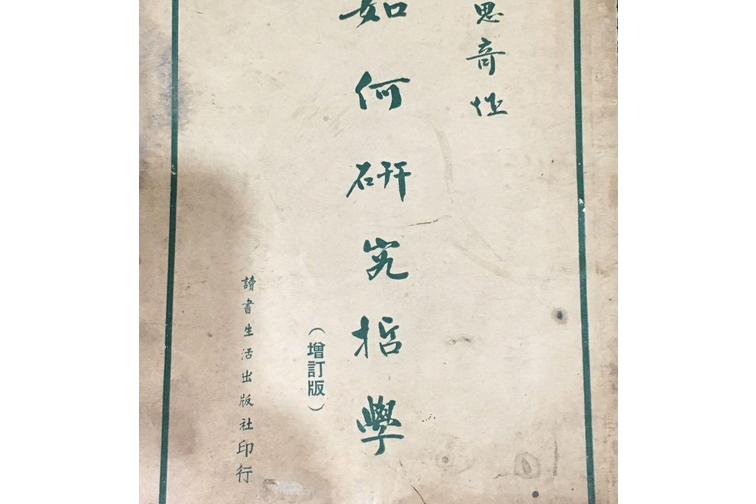 思奇作
如何研究哲學
（增訂版）
讀書生活出版社印行